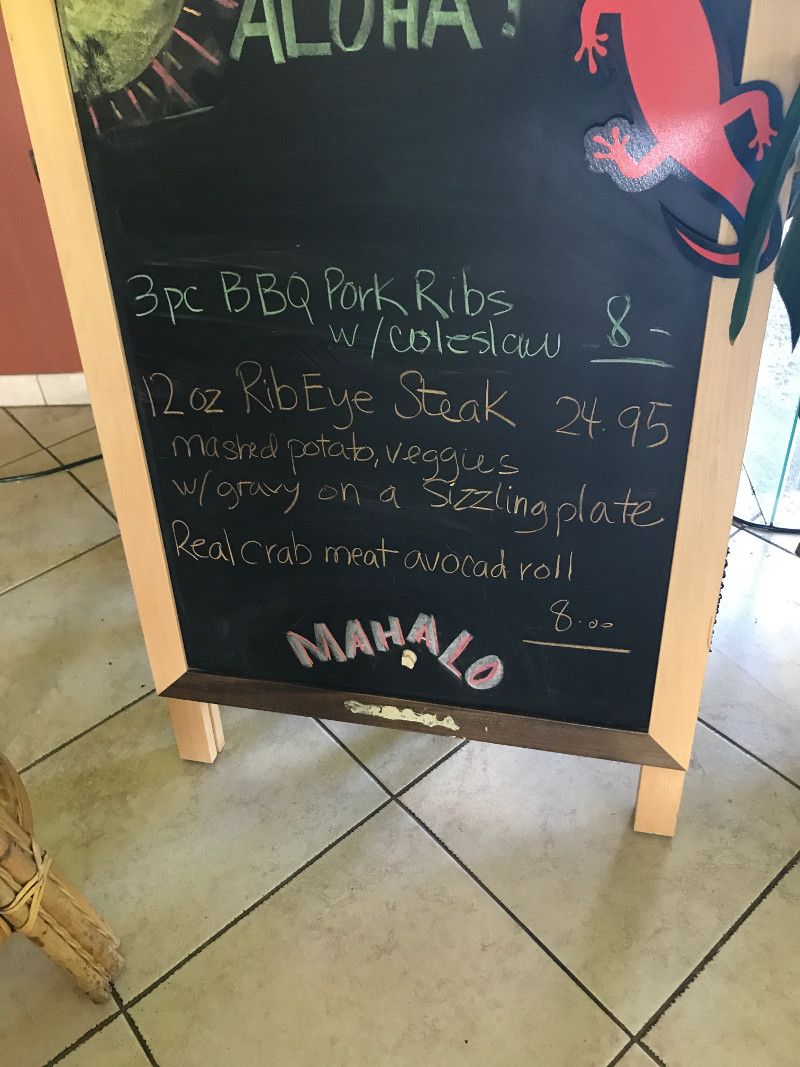 ALOHA!
3pc BBQ Pork Ribs
w/coleslaw 8-
12oz RibEye Steak 24.95
mashed potato, veggies
w/gravy on a Sizzling plate
Real crab meat avocad roll
8.00
MAHALO